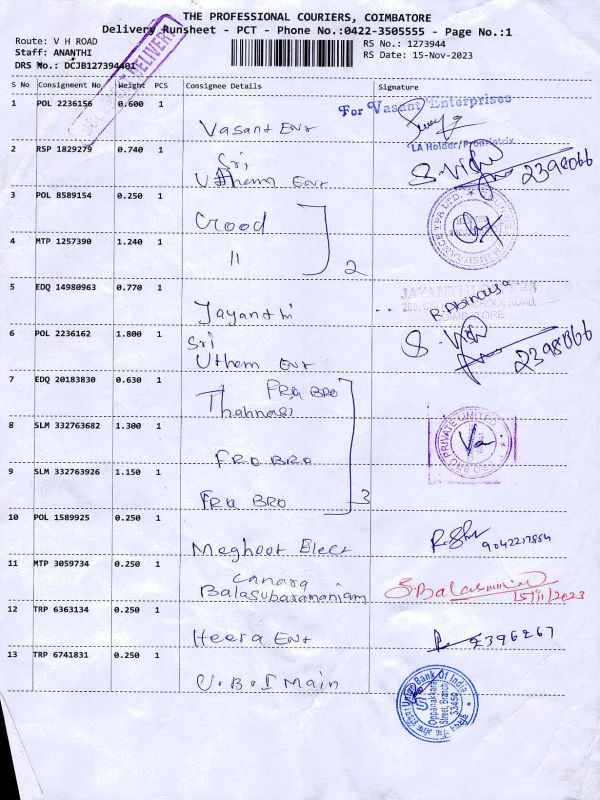 THE PROFESSIONAL COURIERS, COIMBATORE
Delivery Runsheet - PCT - Phone No.:0422-3505555 - Page No.:1
Route: V H ROAD
RS No.: 1273944
Staff: ANANTHI
RS Date: 15-Nov-2023
DRS No.: DCJB127394401
DELIVERY
S No Consignment No Weight PCS Consignee Details Signature
1 POL 2236156 0.600 1 Vasant Ent
For Vasant Enterprises
LA Holder/Proprietrix
2 RSP 1829279 0.740 1 Sri, Uthem Ent
2398066
3 POL 8589154 0.250 1 Crood
4 MTP 1257390 1.240 1 11 2
5 EDQ 14980963 0.770 1 Jayanthi
6 POL 2236162 1.800 1 Sri Uthem Ent
2398066
7 EDQ 20183830 0.630 1 FRA BRO
8 SLM 332763682 1.300 1 FRO BRO
BRO PRIVATE LIMITED
9 SLM 332763926 1.150 1 FRA BRO 3
10 POL 1589925 0.250 1 Megheet Elect
9042217854
11 MTP 3059734 0.250 1 Canara Balasubaramaniam
S. Balasubramani
15/11/2023
12 TRP 6363134 0.250 1 Heera Ent
2396267
13 TRP 6741831 0.250 1 U.B.I Main
Union Bank Of India
Oppanakkara
Street, Branch
33450